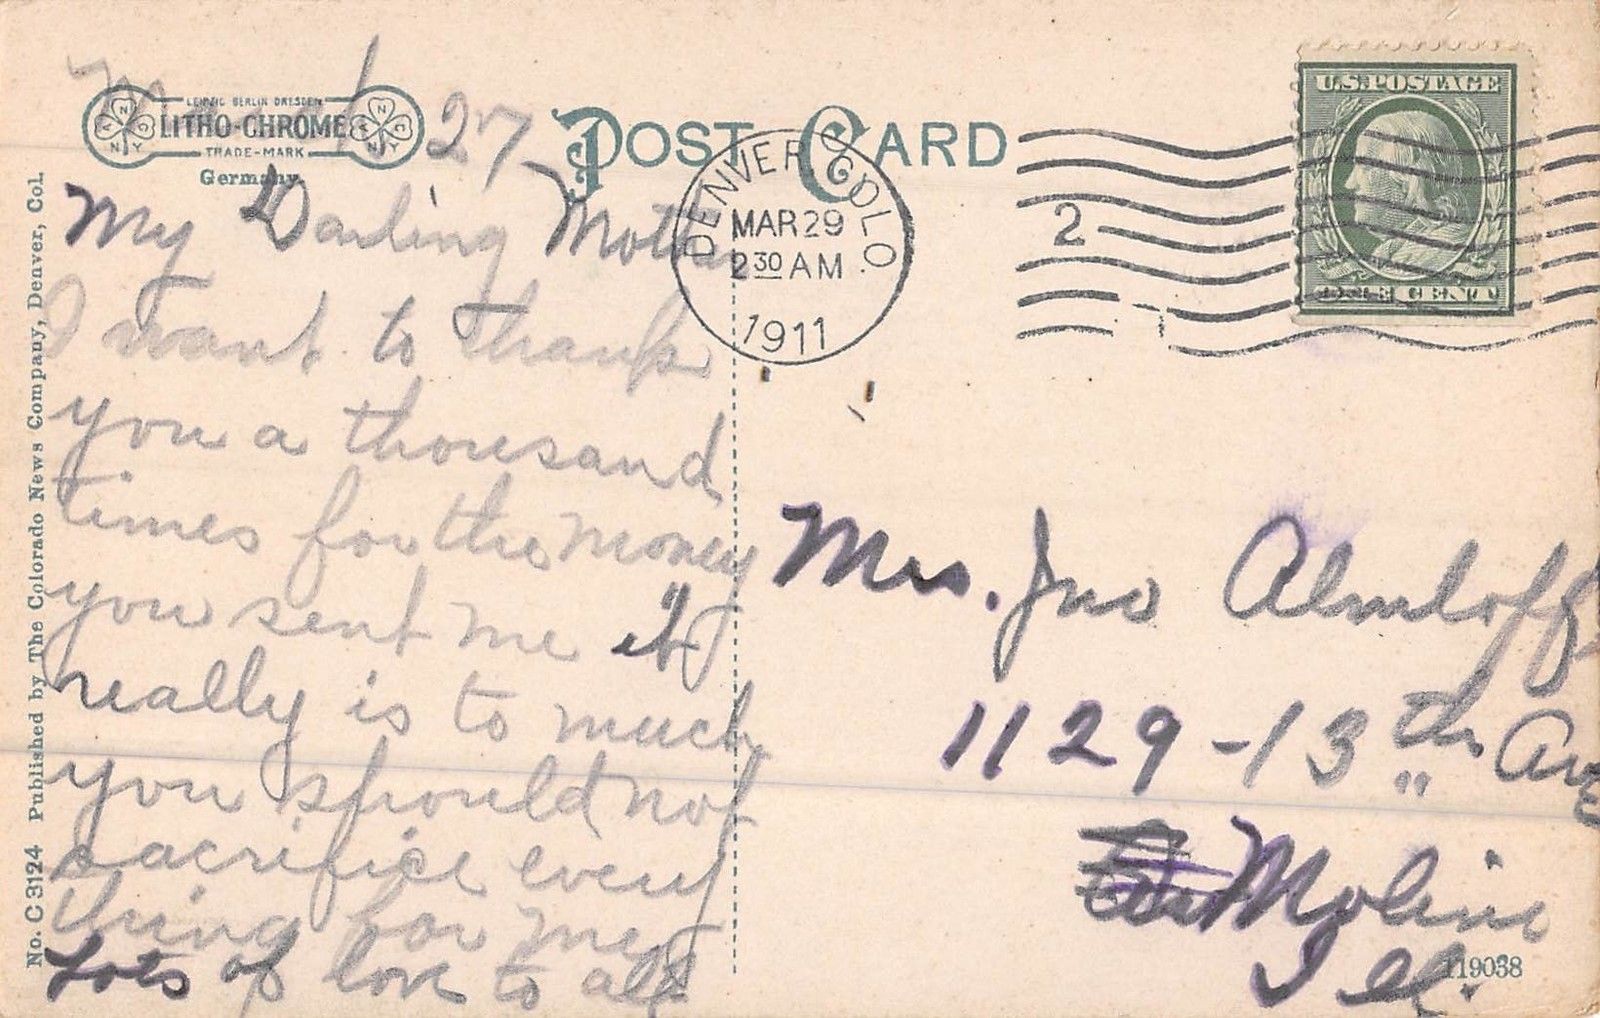 LEIPZIG BERLIN DRESDEN
LITHO-CHROME
TRADE-MARK
Germany
POST CARD
DENVER COLO.
MAR 29
2 30 AM
1911
2
U.S. POSTAGE
ONE CENT
No. C 3124 Published by The Colorado News Company, Denver, Col.
March 27-
My Darling Mother
I want to thank
you a thousand
times for the money
you sent me it
really is to much
you should not
sacrifice every
thing for me
Lots of love to all
Mrs. Jno Almloff
1129-13th Ave
Moline
Ill.
119038